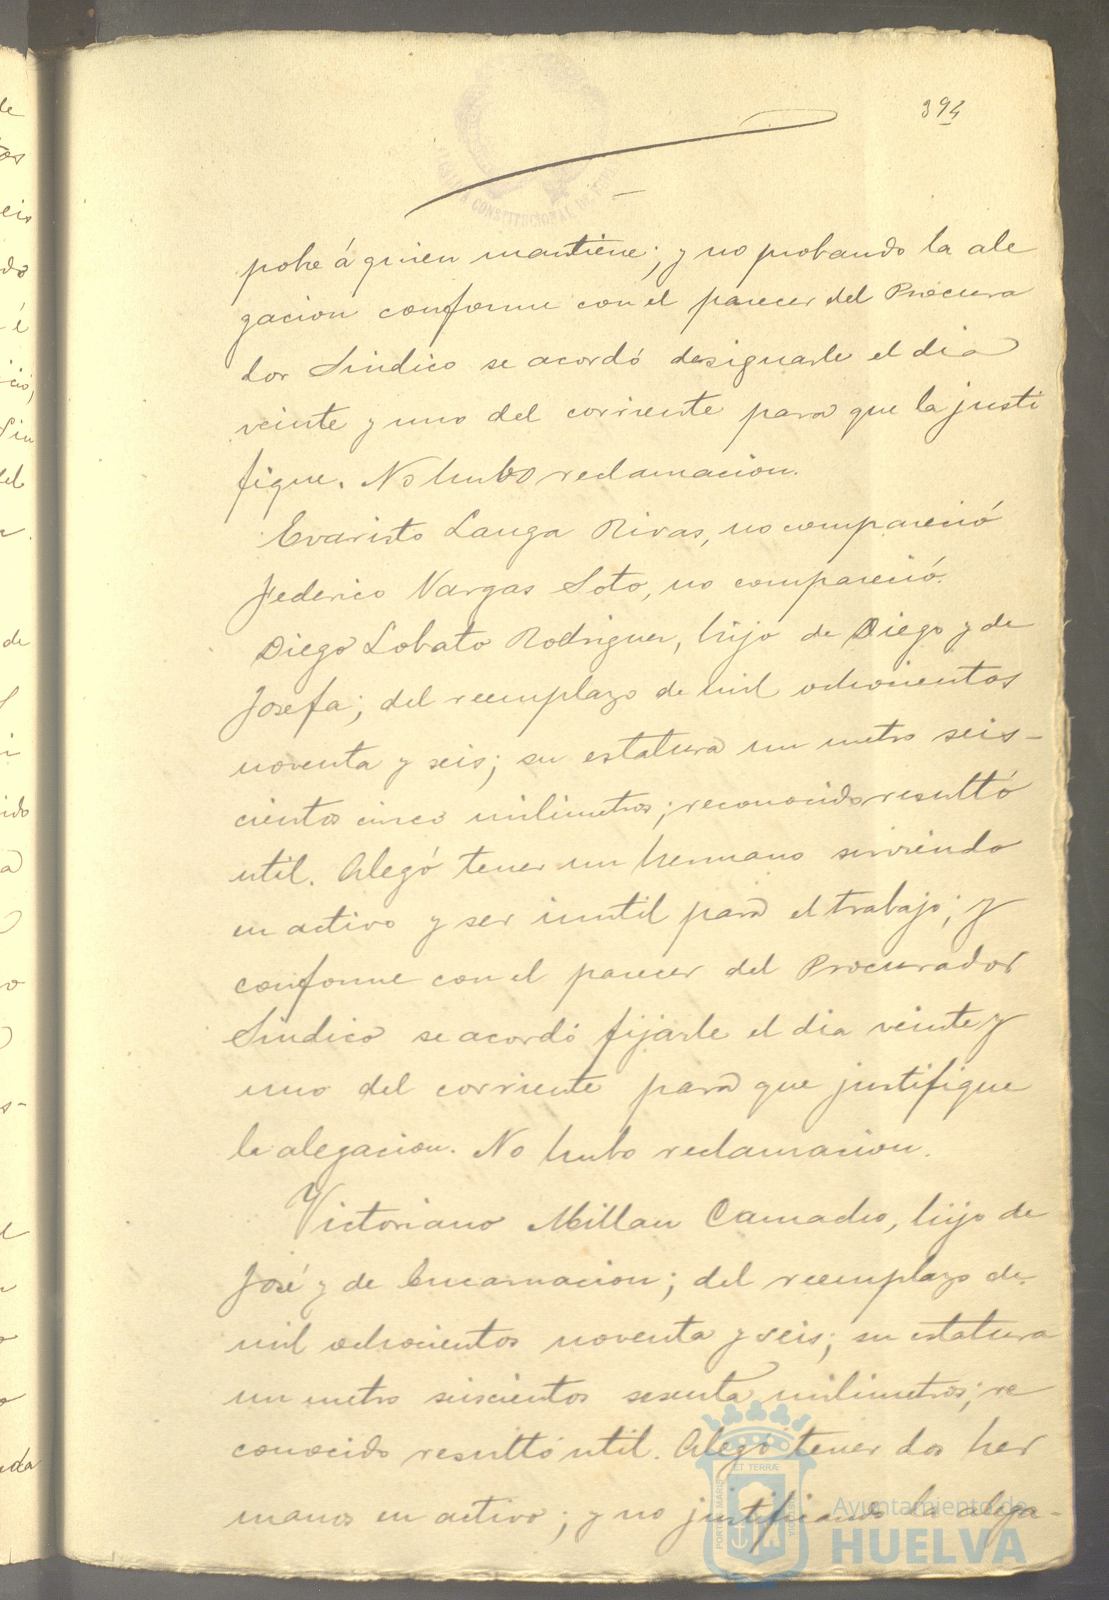 394
pobre á quien mantiene; y no probando la ale
gacion conforme con el parecer del Procura
dor Sindico se acordó designarle el dia
veinte y uno del corriente para que la justi
fique. No hubo reclamacion.
Evaristo Langa Rivas, no compareció
Federico Vargas Soto, no compareció.
Diego Lobato Rodriguez, hijo de Diego y de
Josefa; del reemplazo de mil ochocientos
noventa y seis; su estatura un metro seis-
cientos cinco milimetros; reconocido resultó
util. Alegó tener un hermano sirviendo
en activo y ser inutil para el trabajo; y
conforme con el parecer del Procurador
Sindico se acordó fijarle el dia veinte y
uno del corriente para que justifique
la alegacion. No hubo reclamacion.
Victoriano Millan Camacho, hijo de
José y de Encarnacion; del reemplazo de
mil ochocientos noventa y seis; su estatura
un metro seiscientos sesenta milimetros; re
conocido resultó util. Alegó tener dos her
manos en activo; y no justificando la alega-
Ayuntamiento de
HUELVA